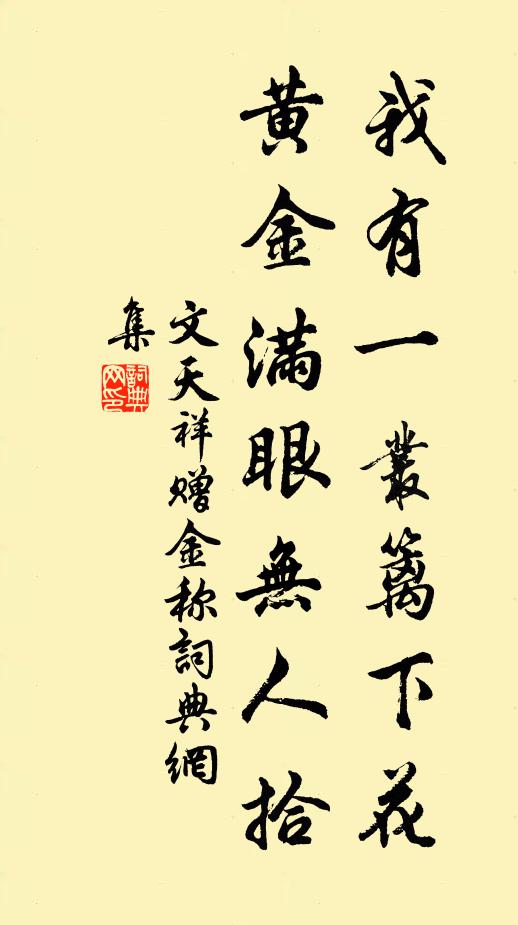 我有一叢籬下花
黃金滿眼無人拾
文天祥贈金称詞典網
集
詞典网印